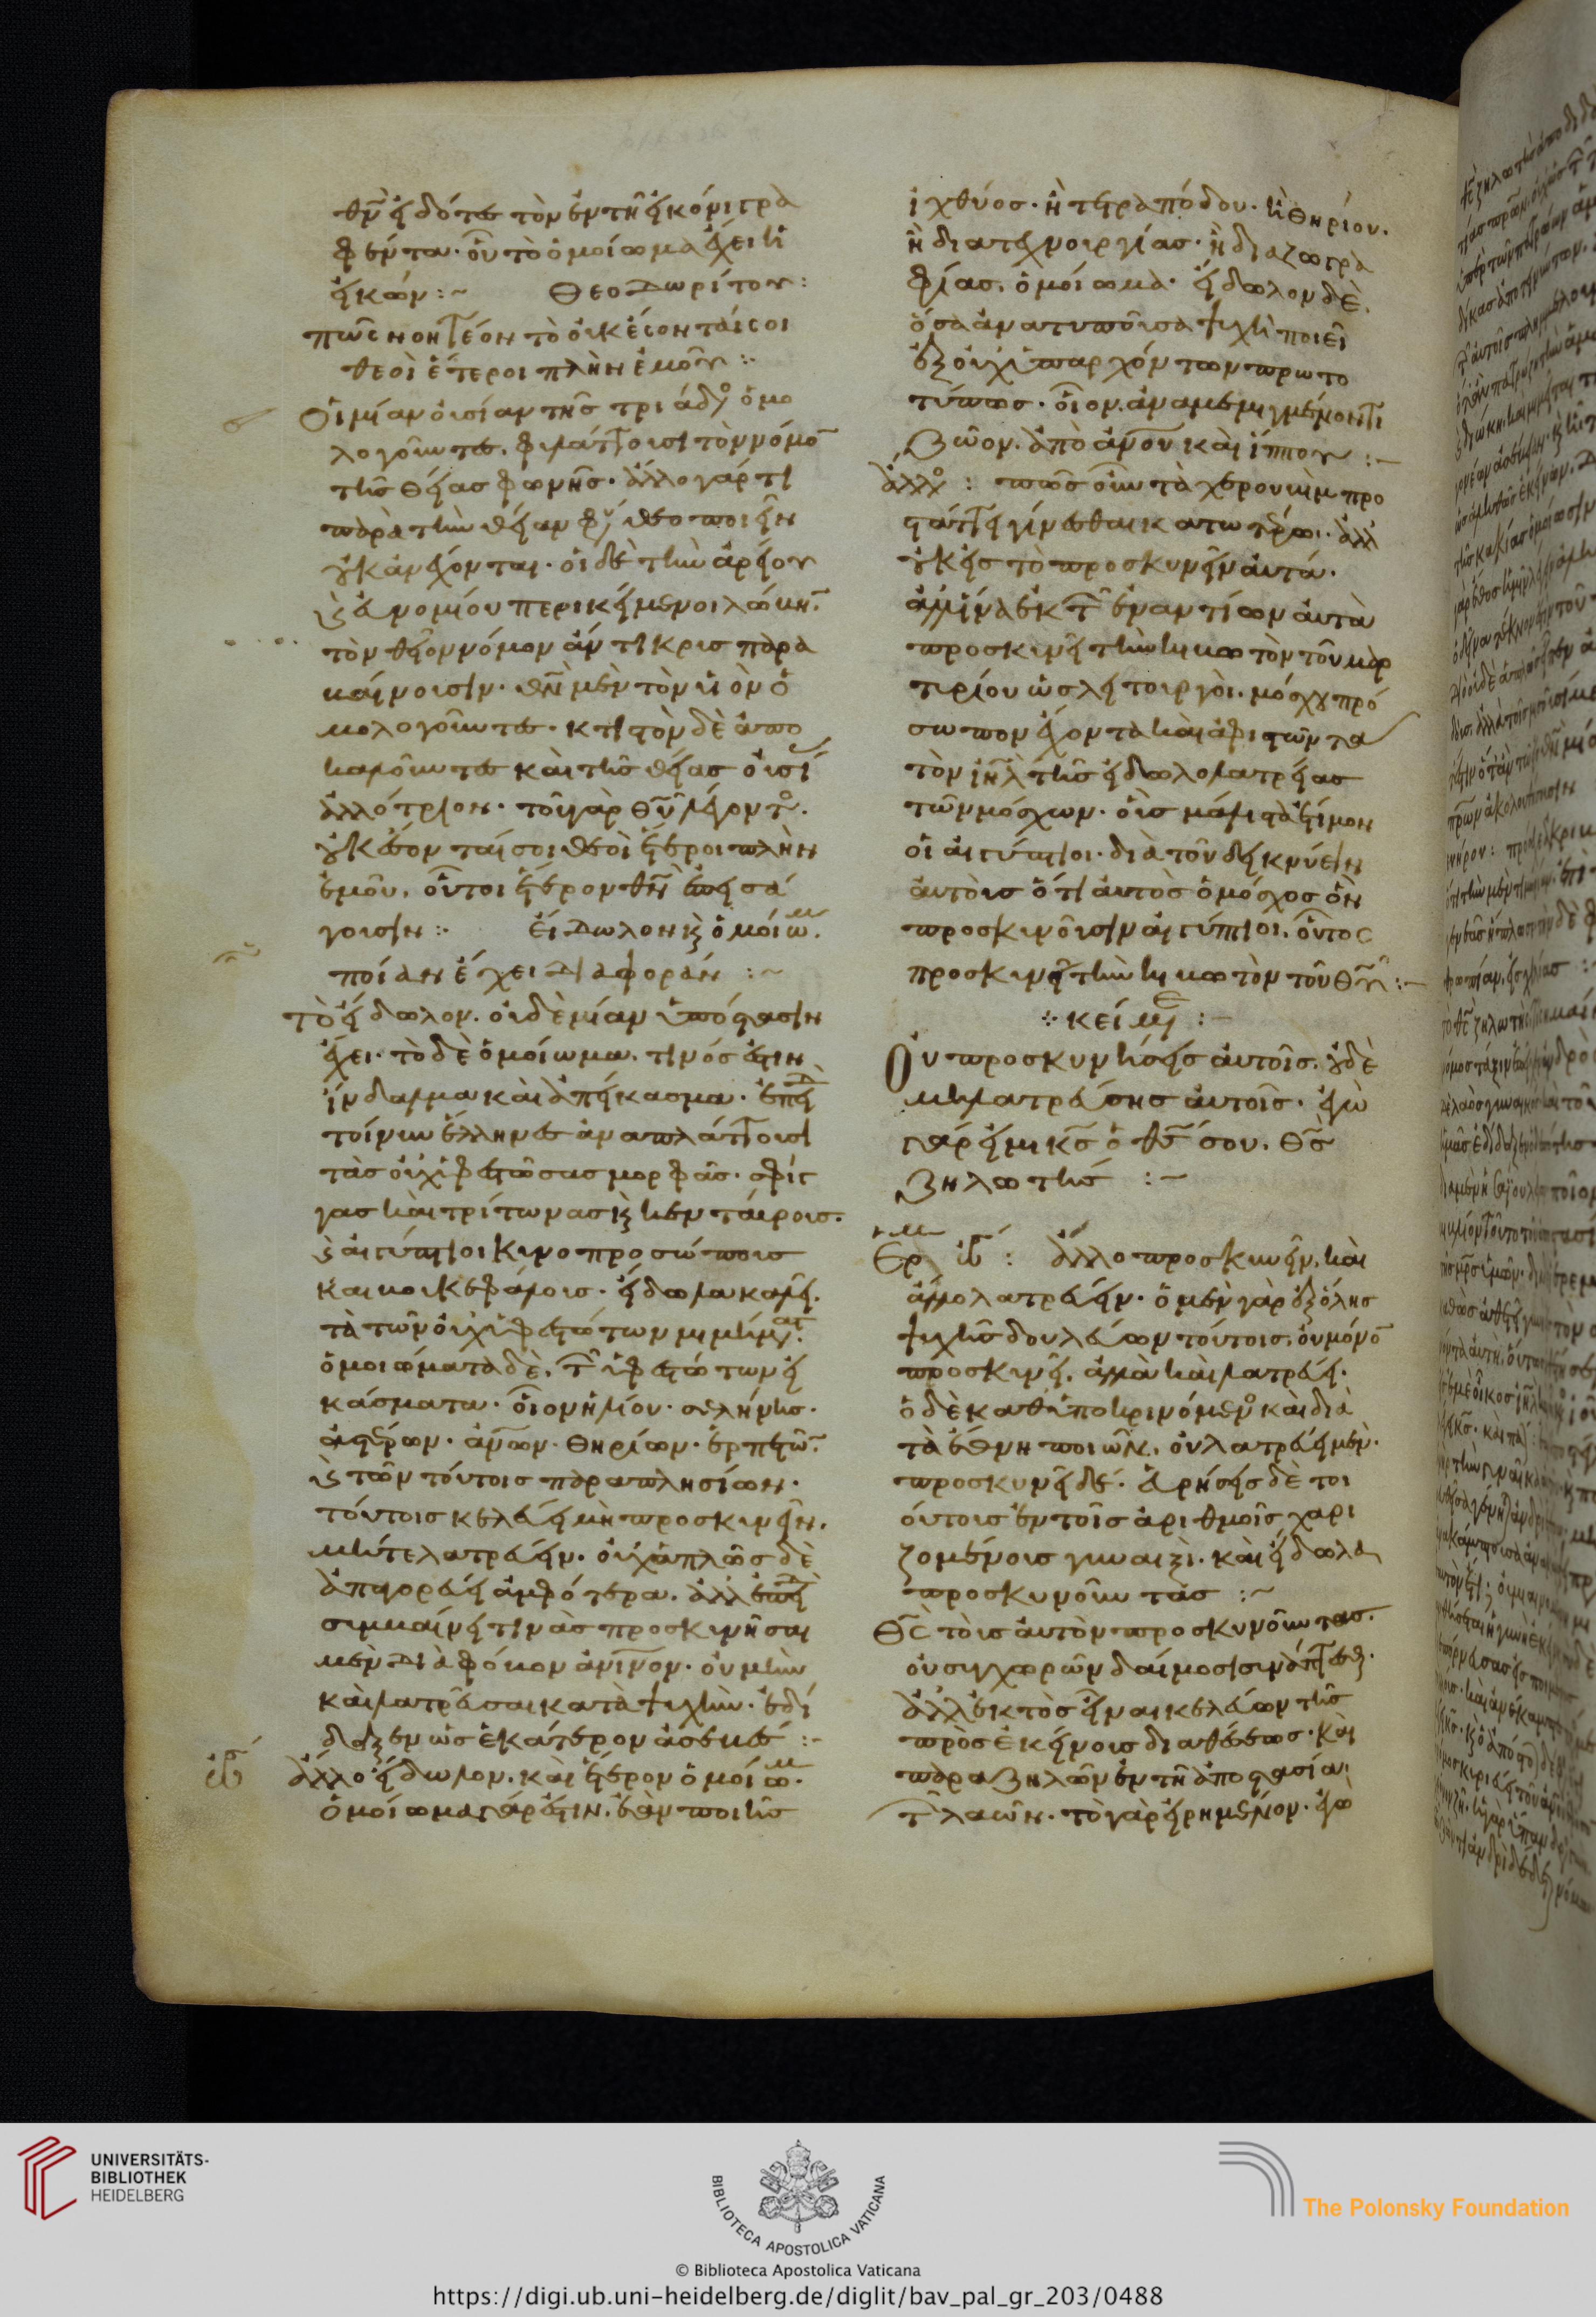 θν̄ εἰδότες τὸν ἐν τῆ εἰκόνι γρα
φέντα· οὗ τὸ ὁμοίωμα ἔχει ἡ
εἰκών :~ Θεοδωρίτου:
πῶς νοητέον τὸ οὐκ ἔσονταί σοι
θεοὶ ἕτεροι πλὴν ἐμοῦ :·
Οἱ μίαν οὐσίαν τῆς τριάδος ὁμο
λογοῦντες, φυλάττουσι τὸν νόμον
τῆς θείας φωνῆς· ἄλλο γάρ τι
παρὰ τὴν θείαν φύσιν θεοποιεῖν
οὐκ ἀνέχονται· οἱ δὲ τὴν ἀρείου
καὶ εὐνομίου περικείμενοι λώβην·
τὸν θεῖον νόμον ἄντικρυς παρα
βαίνουσιν· θν̄ μὲν τὸν υἱὸν ὁ
μολογοῦντες· κτιστὸν δὲ ἀπο
καλοῦντες καὶ τῆς θείας οὐσί
ἀλλότριον· τοῦ γὰρ θῡ λέγοντος·
οὐκ ἔσονταί σοι θεοὶ ἕτεροι πλὴν
ἐμοῦ, οὗτοι ἕτερον θν̄ ἐπεισά
γουσιν :· εἴδωλον καὶ ὁμοίωμ
ποίαν ἔχει διαφοράν :~
τὸ εἴδωλον, οὐδὲ μίαν ὑπόστασιν
ἔχει· τὸ δὲ ὁμοίωμα, τινός ἐστιν
ἴνδαλμα καὶ ἀπείκασμα· ἐπειδ
τοίνυν ἕλληνες ἀναπλάττουσι
τὰς οὐχ ὑφεστώσας μορφάς· σφίγ
γας καὶ τρίτωνας καὶ κενταύρους·
καὶ αἰγύπτιοι κυνοπροσώπους
καὶ βουκεφάλους· εἴδωλα καλεῖ·
τὰ τῶν οὐχ ὑφεστώτων μιμήματ·
ὁμοιώματα δὲ, τῶν ὑφεστώτων εἰ
κάσματα· οἷον ἡλίου· σελήνης·
ἀστέρων· ἀν̄ων· θηρίων· ἑρπετῶν·
καὶ τῶν τούτοις παραπλησίων·
τούτοις κελεύει μὴ προσκυνεῖν·
μήτε λατρεύειν· οὐχ ἁπλῶς δὲ
ἀπαγορεύει ἀμφότερα, ἀλλ ἐπειδ
συμβαίνει τινὰς προσκυνῆσαι
μὲν διὰ φόβον ἀν̄ινον· οὐ μὴν
καὶ λατρεῦσαι κατὰ ψυχὴν· ἐδί
δαξεν ὡς ἑκάτερον ἀσεβές :-
ἄλλο εἴδωλον, καὶ ἕτερον ὁμοίωμ·
ὁμοίωμα γάρ ἐστιν, ἐὰν ποιῆς
ἰχθύος· ἢ τετραπόδου· ἢ θηρίου·
ἢ διὰ τεχνουργίας· ἢ διὰ ζωγρα
φίας, ὁμοίωμα· εἴδωλον δὲ,
ὅσα ἀνατυποῦσα ψυχὴ ποιεῖ
ἐξ οὐχ ὑπαρχόντων πρωτο
τύπως· οἷον ἀναμεμιγμένον τι
ζῶον, ἀπὸ ἀν̄ου καὶ ἵππου :-
ἄλλος : πῶς οὖν τὰ χερουβὶμ προ
στάττει γίνεσθαι κατωτέρω· ἀλλ
οὐκ εἰς τὸ προσκυνεῖν αὐτά·
ἀλλ ἵνα ἐκ τῶν ἐναντίων αὐτὰ
προσκυνῆ τὴν κιβωτὸν τοῦ μαρ
τυρίου ὡς λειτουργοὶ, μόσχου πρό
σωπον ἔχοντα καὶ ἀφιστῶντα
τὸν ιη̄λ τῆς εἰδωλολατρείας
τῶν μόσχων· οὓς μάλιστα ἐτίμων
οἱ αἰγύπτιοι· διὰ τοῦ δεικνύειν
αὐτοῖς ὅτι αὐτὸς ὁ μόσχος ὃν
προσκυνοῦσιν αἰγύπτιοι, οὗτος
προσκυνεῖ τὴν κιβωτὸν τοῦ θῡ :-
κείμε :-
Οὐ προσκυνήσεις αὐτοῖς, οὐδὲ
μὴ λατρεύσης αὐτοῖς· ἐγὼ
γάρ εἰμι κς̄ ὁ θς̄ σου, θς̄
ζηλωτής :-
Ερμ : ἄλλο προσκυνεῖν, καὶ
ἄλλο λατρεύειν· ὁ μὲν γὰρ ἐξ ὅλης
ψυχῆς δουλεύων τούτοις, οὐ μόνον
προσκυνεῖ, ἀλλὰ καὶ λατρεύει·
ὁ δὲ καθυποκρινόμενος καὶ διὰ
τὰ ἔθνη ποιῶν, οὐ λατρεύει μέν·
προσκυνεῖ δέ· εὑρήσεις δὲ τοι
ούτους ἐν τοῖς ἀριθμοῖς χαρι
ζομένους γυναιξὶ· καὶ εἴδωλα
προσκυνοῦντας :~
Θς̄ τοὺς αὐτὸν προσκυνοῦντας,
οὐ συγχωρῶν δαίμοσι συνάπτεσθαι·
ἀλλ ἐκτὸς εἶναι κελεύων τῆς
πρὸς ἐκείνους διαθέσεως· καὶ
παραζηλῶν ἐν τῆ ἀποστασία
τῶν λαῶν· τὸ γὰρ εἰρημένον· ἐγὼ
UNIVERSITÄTS-
BIBLIOTHEK
HEIDELBERG
BIBLIOTECA APOSTOLICA VATICANA
The Polonsky Foundation
© Biblioteca Apostolica Vaticana
https://digi.ub.uni-heidelberg.de/diglit/bav_pal_gr_203/0488